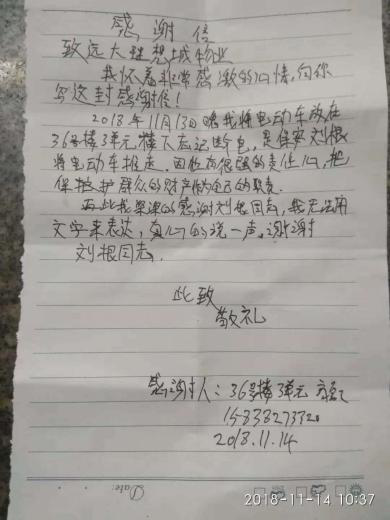 感谢信
致远大理想城物业
我怀着非常感激的心情,向你
写这封感谢信!
2018年11月13日晚我将电动车放在
36号楼3单元楼下忘记断电,是保安刘根
将电动车推走,因他有很强的责任心,把
保护群众的财产作为自己的职责.
再此我深深的感谢刘根同志,我无法用
文字来表达,真心的说一声,谢谢
刘根同志.
此致
敬礼
感谢人:36号楼3单元
15838273320
2018.11.14
Date:
2018-11-14 10:37